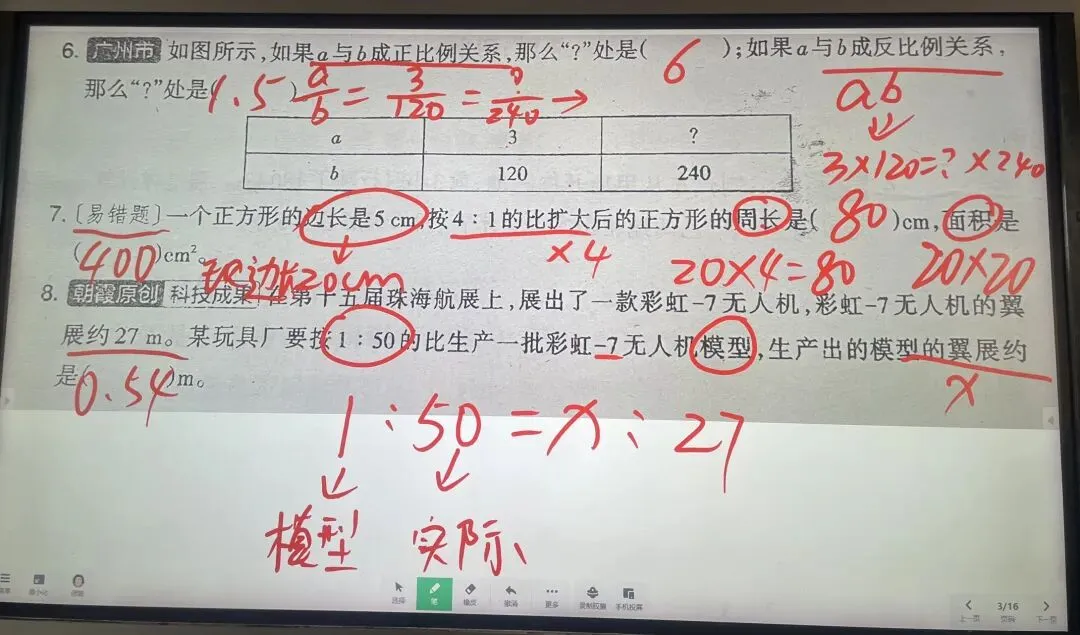 6. 广州市 如图所示,如果a与b成正比例关系,那么“?”处是( 6 );如果a与b成反比例关系,
那么“?”处是( 1.5 ) a/b = 3/120 = ?/240 → ab
a 3 ?
b 120 240
3×120=?×240
7.〔易错题〕一个正方形的边长是5 cm,按4∶1的比扩大后的正方形的周长是( 80 )cm,面积是
( 400 )cm²。 现边长20cm ×4 20×4=80 20×20
8. 朝霞原创 科技成果 在第十五届珠海航展上,展出了一款彩虹-7无人机,彩虹-7无人机的翼
展约27 m。某玩具厂要按1∶50的比生产一批彩虹-7无人机模型,生产出的模型的翼展约
是( 0.54 )m。 x
1∶50=x∶27
模型 实际
选择 笔 橡皮 撤消 更多 录制胶囊 手机投屏
3/16
上一页 页码 下一页